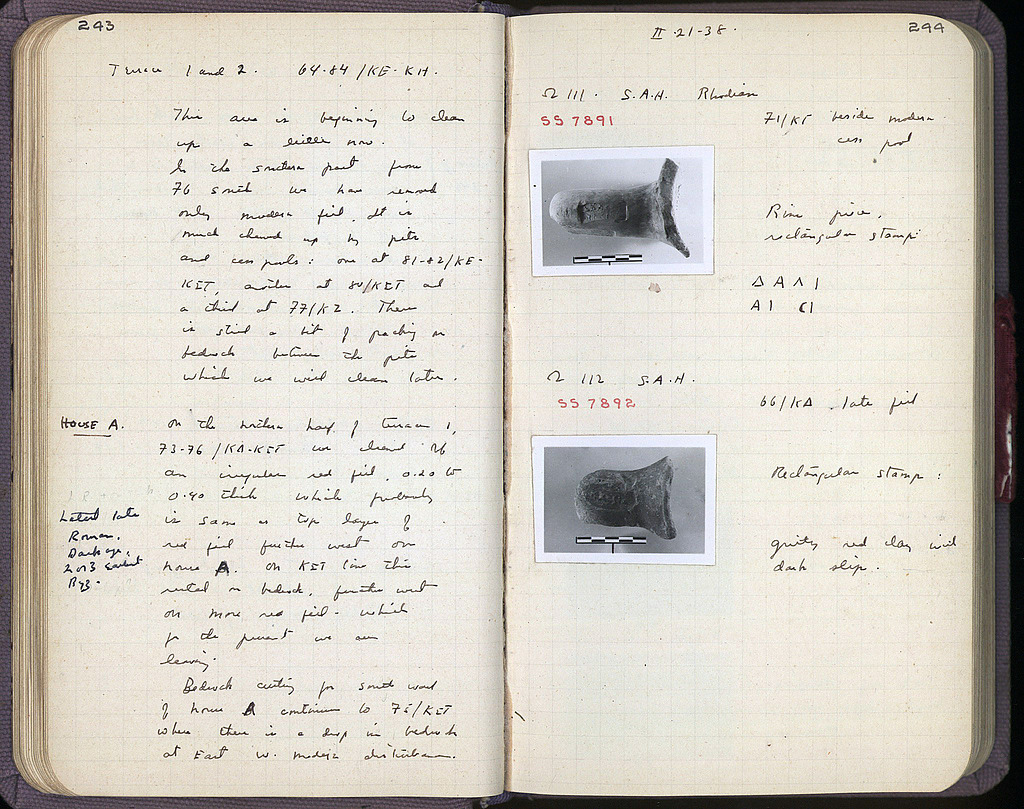 243
Terrace 1 and 2. 64-84/KE-KH.
This area is beginning to clean
up a little now.
In the southern part from
76 south we have removed
only modern fill. It is
much chewed up by pits
and cess pools: one at 81-82/KE-
KΣΤ, another at 80/KΣΤ and
a third at 77/KZ. There
is still a bit of packing on
bedrock between the pits
which we will clean later.
HOUSE A.
On the northern half of terrace 1,
73-76/KΔ-KΣΤ we cleared off
an irregular red fill, 0.20 to
0.40 thick which probably
is same as top layer of
red fill further west over
house A. On KΣΤ line this
rested on bedrock, further west
on more red fill - which
for the present we are
leaving.
Latest late
Roman.
Dark age,
2 or 3 earliest
Byz.
Bedrock cutting for south wall
of house A continues to 75/KΣΤ
where there is a drop in bedrock
at East w. modern disturbance.
II-21-38.
244
Ω 111. S.A.H. Rhodian
SS 7891
71/KΣΤ beside modern
cess pool
Rim piece,
rectangular stamp:
Δ Α Λ Ι
Α Ι Ͼ Ι
Ω 112 S.A.H.
SS 7892
66/KΔ. late fill
Rectangular stamp:
gritty red clay with
dark slip.